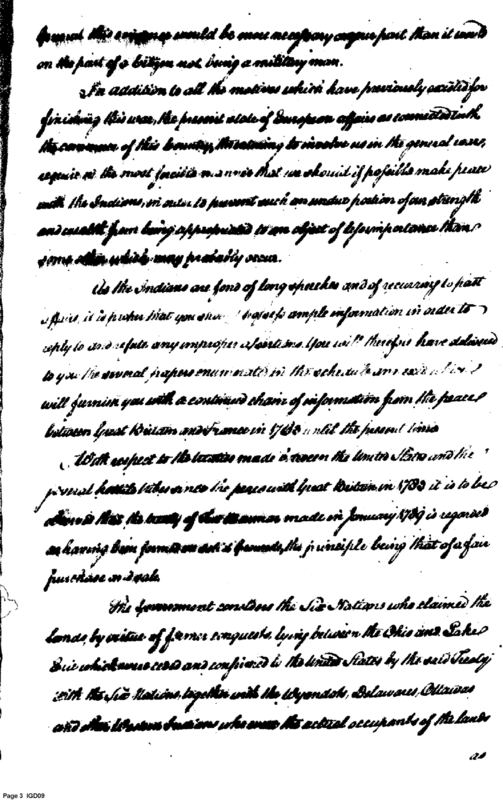 this evidence would be more necessary on your part than it would
on the part of a Citizen not being a military man.
In addition to all the motives which have previously existed for
finishing this war, the present state of European affairs as connected with
the commerce of this Country, threatening to involve us in the general war,
require in the most forcible manner that we should if possible make peace
with the Indians, in order to prevent such an undue portion of our strength
and wealth from being appropriated to an object of less importance than
some other which may probably occur.
As the Indians are fond of long speeches and of recurring to past
affairs, it is proper that you should possess ample information in order to
reply to and refute any improper assertions. You will therefore have delivered
to you the several papers enumerated in the schedule and
will furnish you with a continued chain of information from the peace
between Great Britain and France in 1763 until the present time
With respect to the treaties made between the United States and the
several hostile tribes since the peace with Great Britain in 1783 it is to be
observed that the treaty of Fort Harmar made in January 1789 is regarded
as having been formed on solid grounds, the principle being that of a fair
purchase and sale.
The Government considers the Six Nations who claimed the
lands, by virtue of former conquests, lying between the Ohio and Lake
Erie which were ceded and confirmed to the United States by the said Treaty
with the Six Nations, together with the Wyandots, Delawares, Ottawas
and other Western Indians who were the actual occupants of the lands
as
Page 3 IGD09